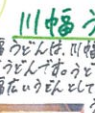 川幅う
うどんは、川幅
うどんです。うど
幅広いうどんとして